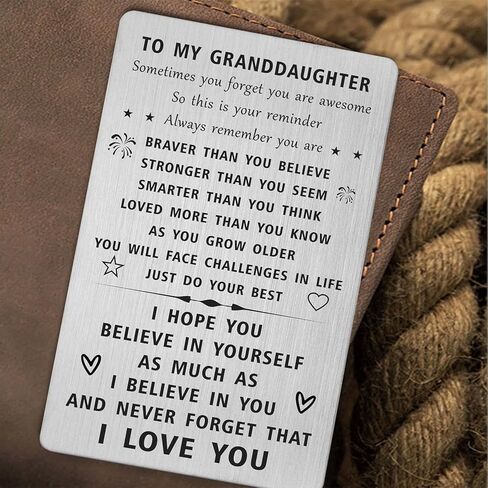 TO MY GRANDDAUGHTER
Sometimes you forget you are awesome
So this is your reminder
Always remember you are
BRAVER THAN YOU BELIEVE
STRONGER THAN YOU SEEM
SMARTER THAN YOU THINK
LOVED MORE THAN YOU KNOW
AS YOU GROW OLDER
YOU WILL FACE CHALLENGES IN LIFE
JUST DO YOUR BEST
I HOPE YOU
BELIEVE IN YOURSELF
AS MUCH AS
I BELIEVE IN YOU
AND NEVER FORGET THAT
I LOVE YOU